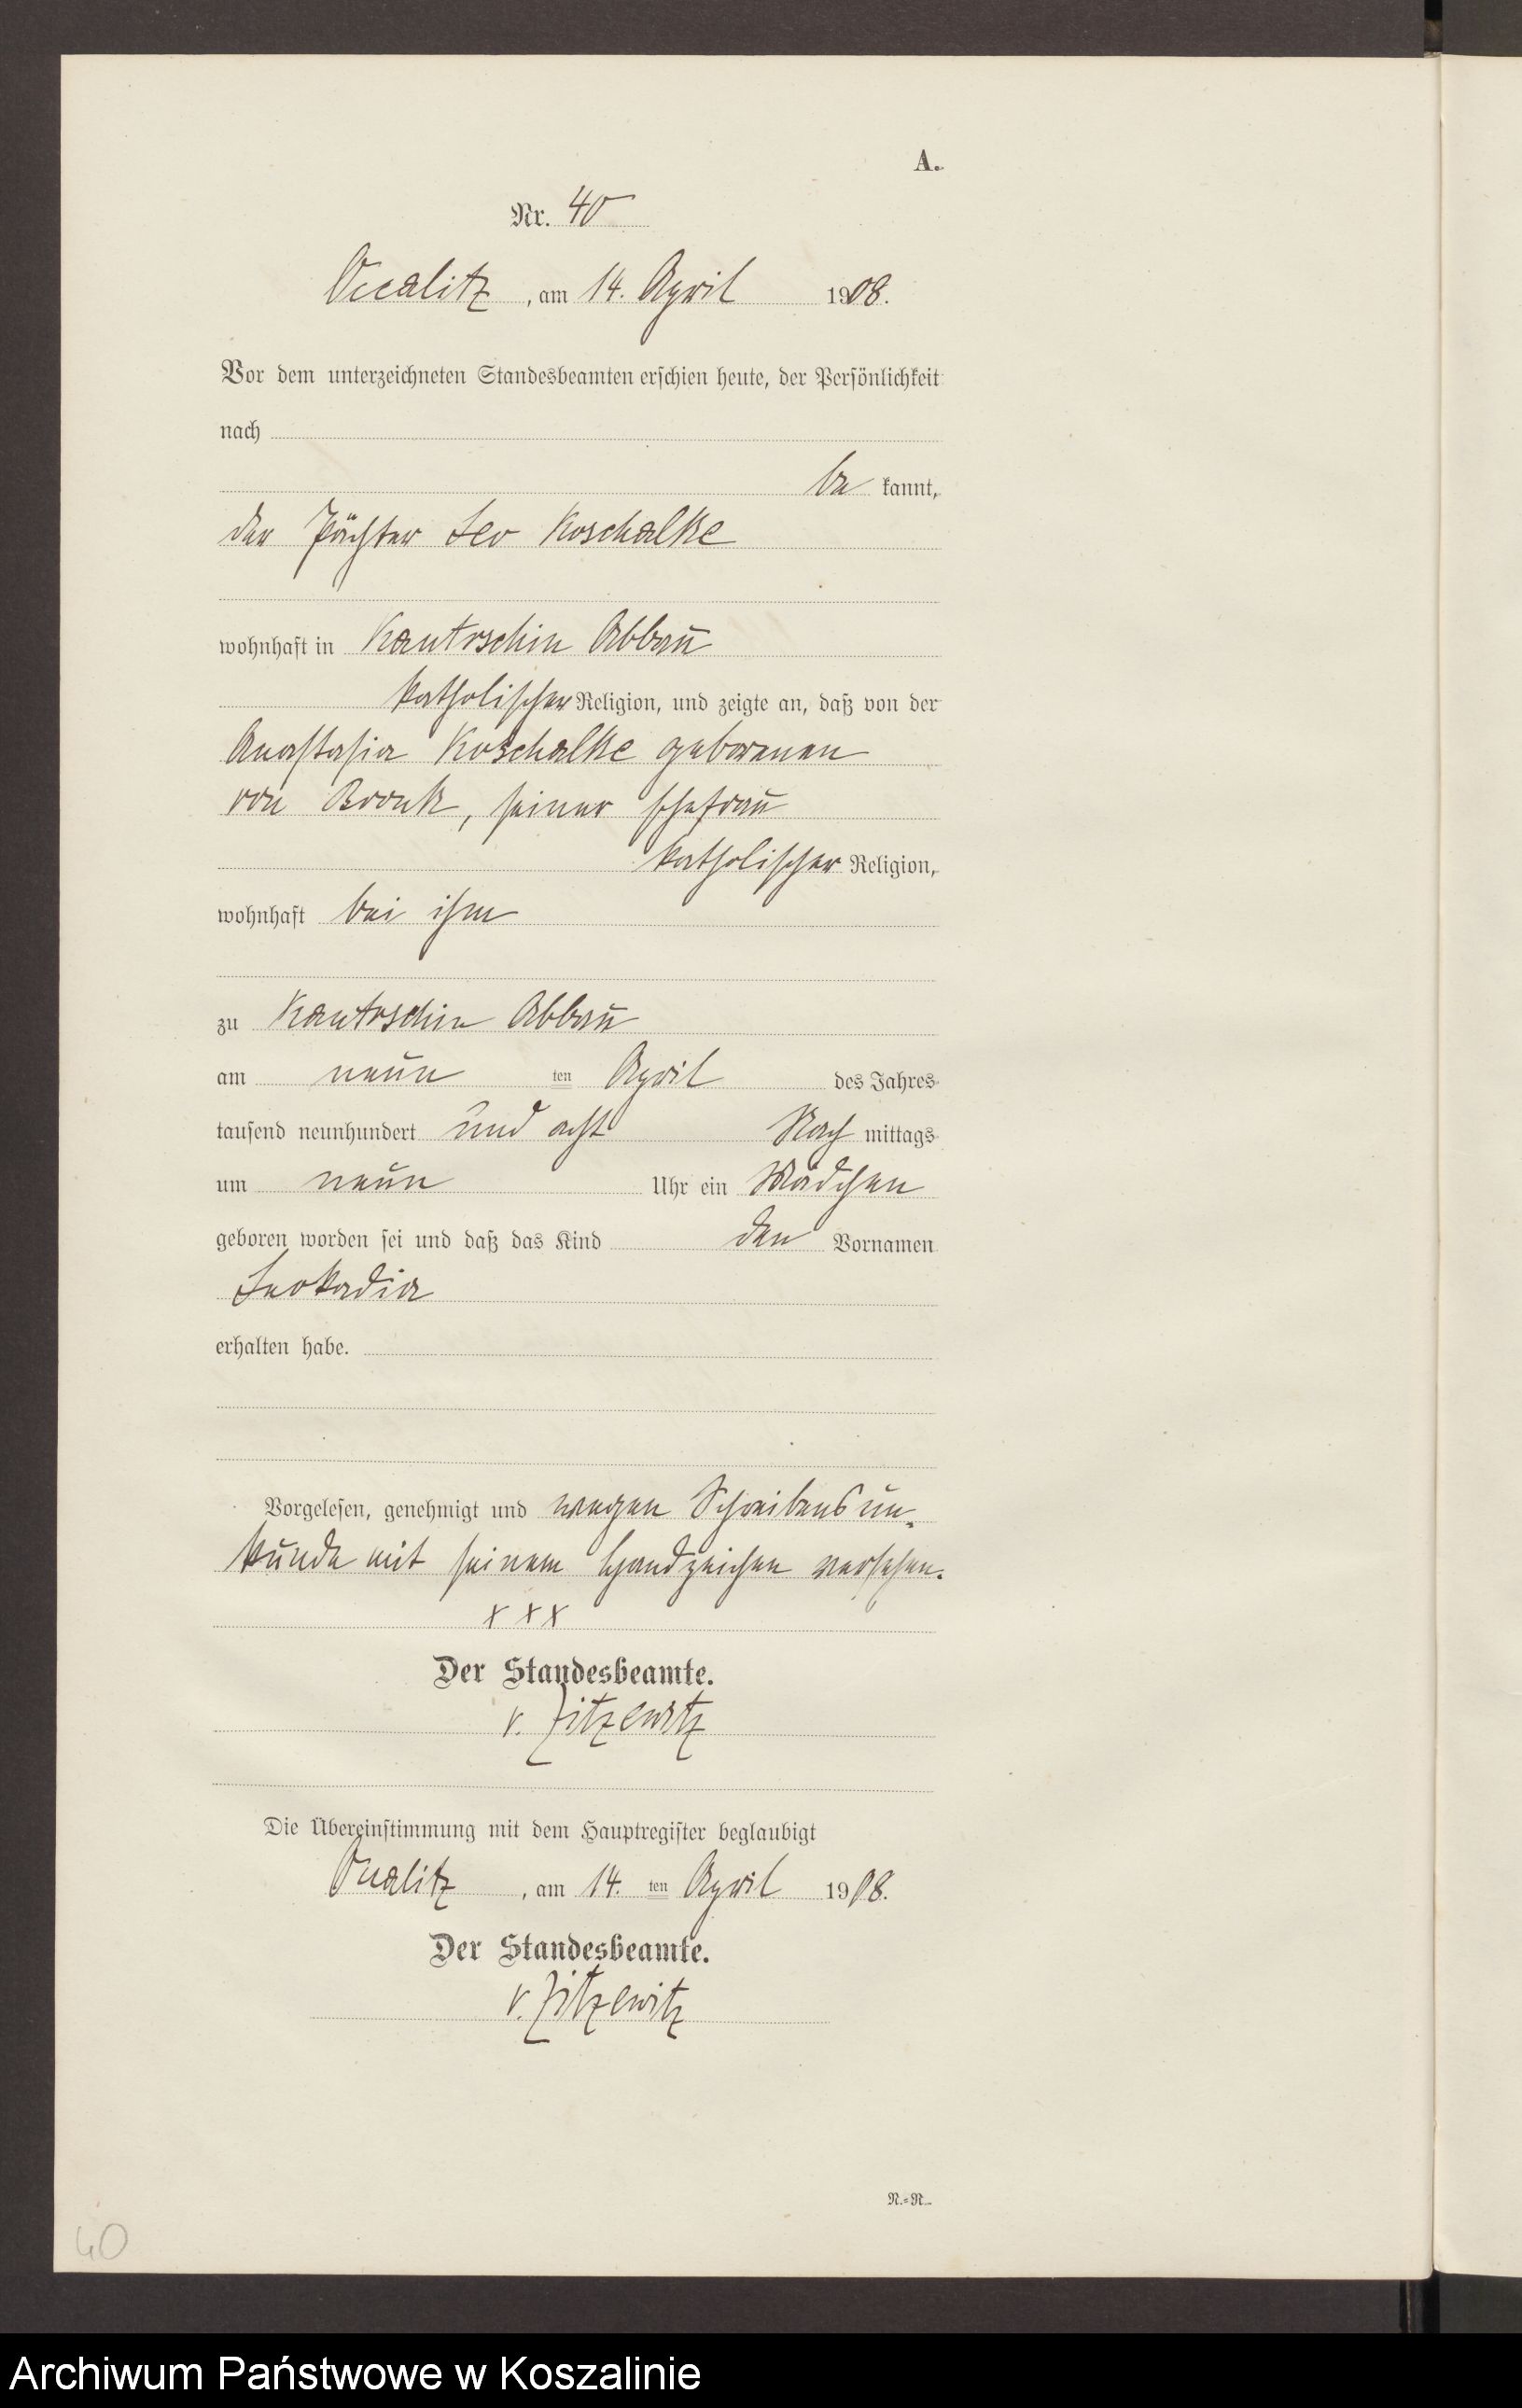 A.
Nr. 40
Occalitz, am 14. April 1908.
Vor dem unterzeichneten Standesbeamten erschien heute, der Persönlichkeit
nach
be kannt,
der Pächter Leo Koschalke
wohnhaft in Kantrschin Abbau
katholischer Religion, und zeigte an, daß von der
Anastasia Koschalke geborenen
von Bronk, seiner Ehefrau
katholischer Religion,
wohnhaft bei ihm
zu Kantrschin Abbau
am neun ten April des Jahres
tausend neunhundert und acht Nach mittags
um neun Uhr ein Mädchen
geboren worden sei und daß das Kind den Vornamen
Leokadia
erhalten habe.
Vorgelesen, genehmigt und wegen Schreibensun-
kunde mit seinem Handzeichen versehen.
x x x
Der Standesbeamte.
v. Zitzewitz
Die Übereinstimmung mit dem Hauptregister beglaubigt
Occalitz, am 14. ten April 1908.
Der Standesbeamte.
v. Zitzewitz
N.=R.
40
Archiwum Państwowe w Koszalinie